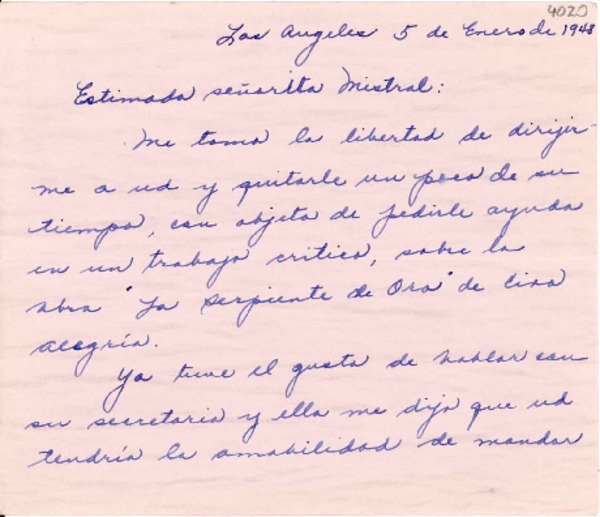 4020
Los Angeles 5 de Enero de 1948
Estimada señorita Mistral:
Me tomo la libertad de dirijir-
me a ud y quitarle un poco de su
tiempo, con objeto de pedirle ayuda
en un trabajo critico, sobre la
obra "La Serpiente de Oro" de Ciro
Alegría.
Ya tuve el gusto de hablar con
su secretaria y ella me dijo que ud
tendría la amabilidad de mandar